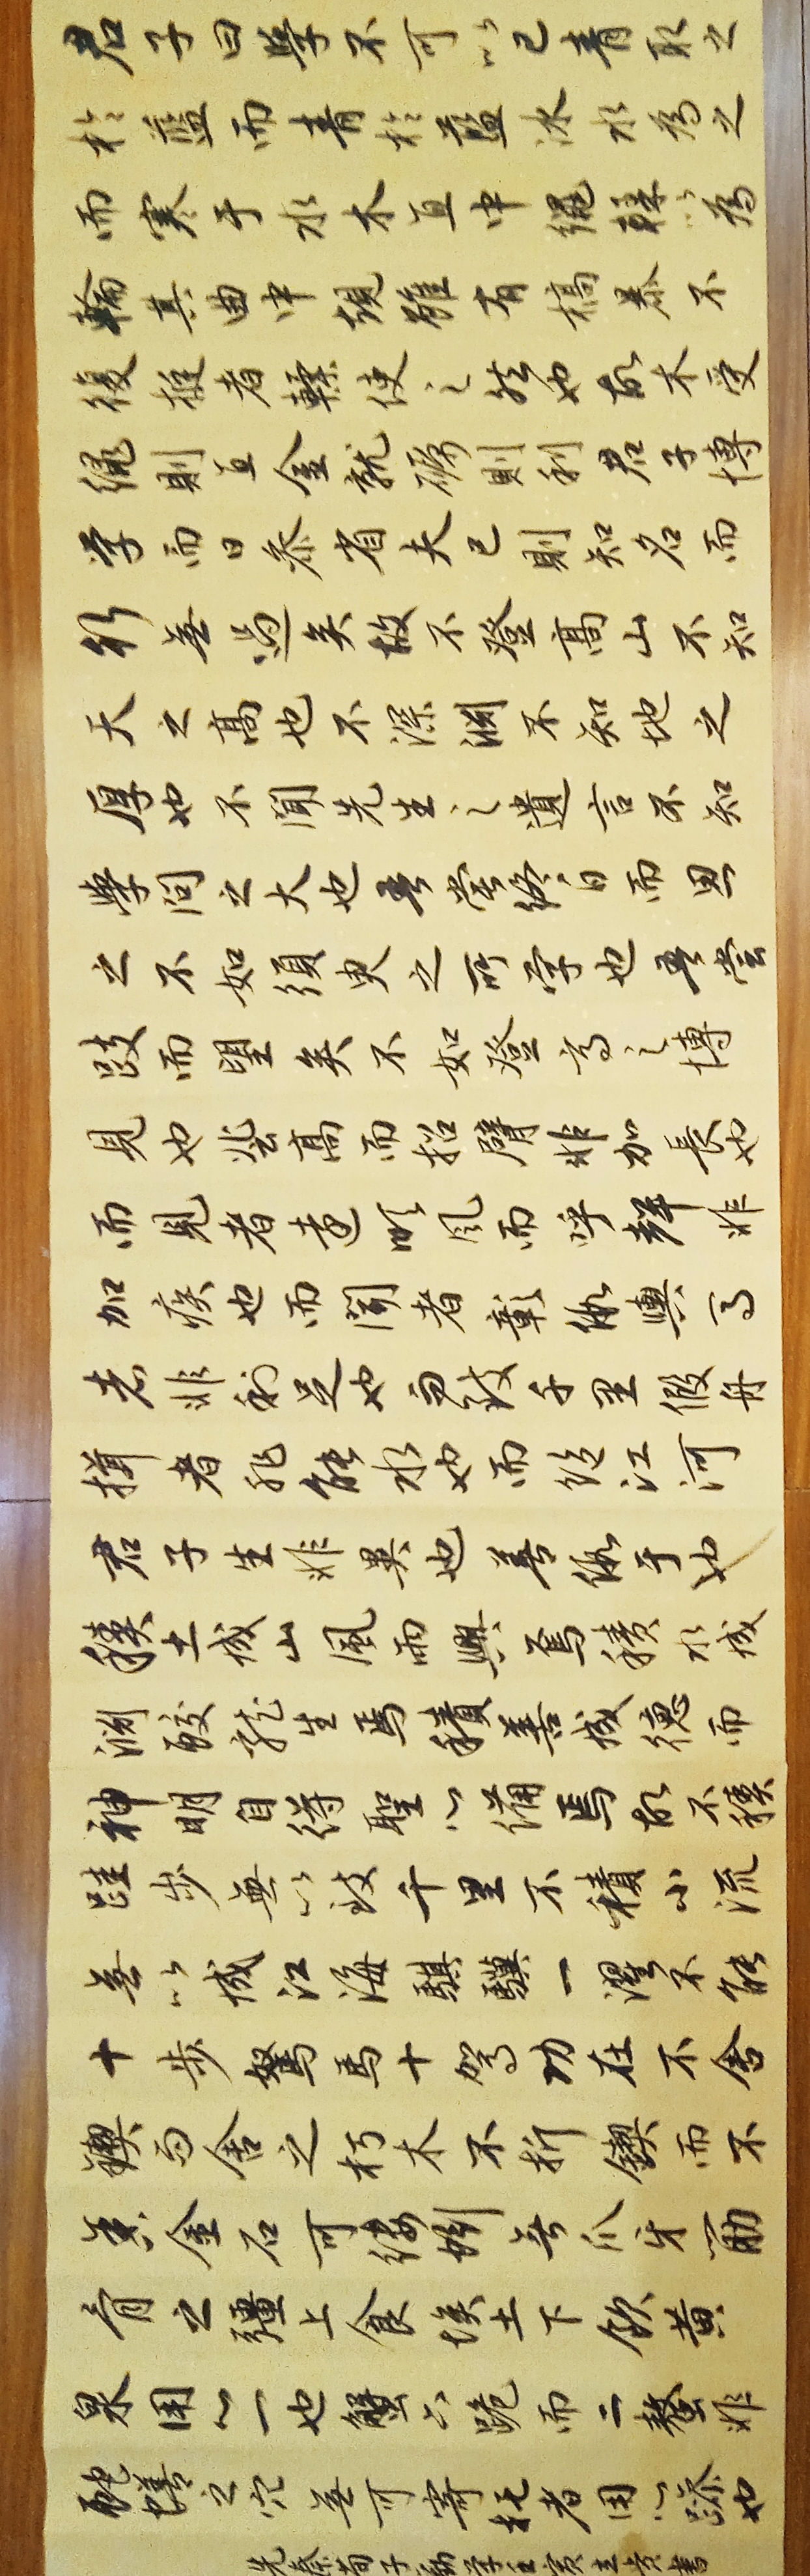 君子曰學不可以已青取之
於藍而青於藍冰水為之
而寒于水木直中繩輮以為
輪其曲中規雖有槁暴不
復挺者輮使之然也故木受
繩則直金就礪則利君子博
学而日參省夫己則知名而
行無過矣故不登高山不知
天之高也不深淵不知地之
厚也不聞先生之遺言不知
學問之大也吾嘗終日而思
之不如須臾之所学也吾嘗
跂而望矣不如登高之博
見也登高而招臂非加長也
而見者遠順風而呼聲非
加疾也而聞者彰假輿馬
者非利足也而致千里假舟
楫者非能水也而絕江河
君子生非異也善假于也
積土成山風雨興焉積水成
淵蛟龙生焉積善成德而
神明自得聖心備焉故不積
跬步無以致千里不積小流
無以成江海騏驥一躍不能
十步駑馬十駕功在不舍
鍥而舍之朽木不折鍥而不
舍金石可鏤蚓無爪牙筋
骨之彊上食埃土下飲黄
泉用心一也蟹六跪而二螯非
蛇蟮之穴無可寄托者用心躁也
先秦荀子勸学